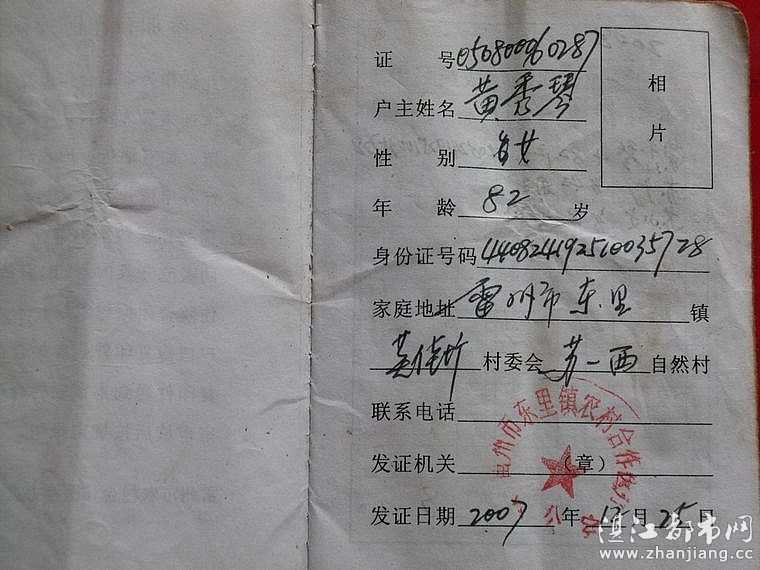 证 号 05080060287
户主姓名 黄秀琴
性 别 女
年 龄 82 岁
身份证号码 440824192510035728
家庭地址 雷州市东里 镇
村委会 苏一西 自然村
联系电话
发证机关 (章)
发证日期 2007 年 12 月 25 日
相片
州市东里镇农村合作医疗
湛江都市网
www.zhanjiang.cc